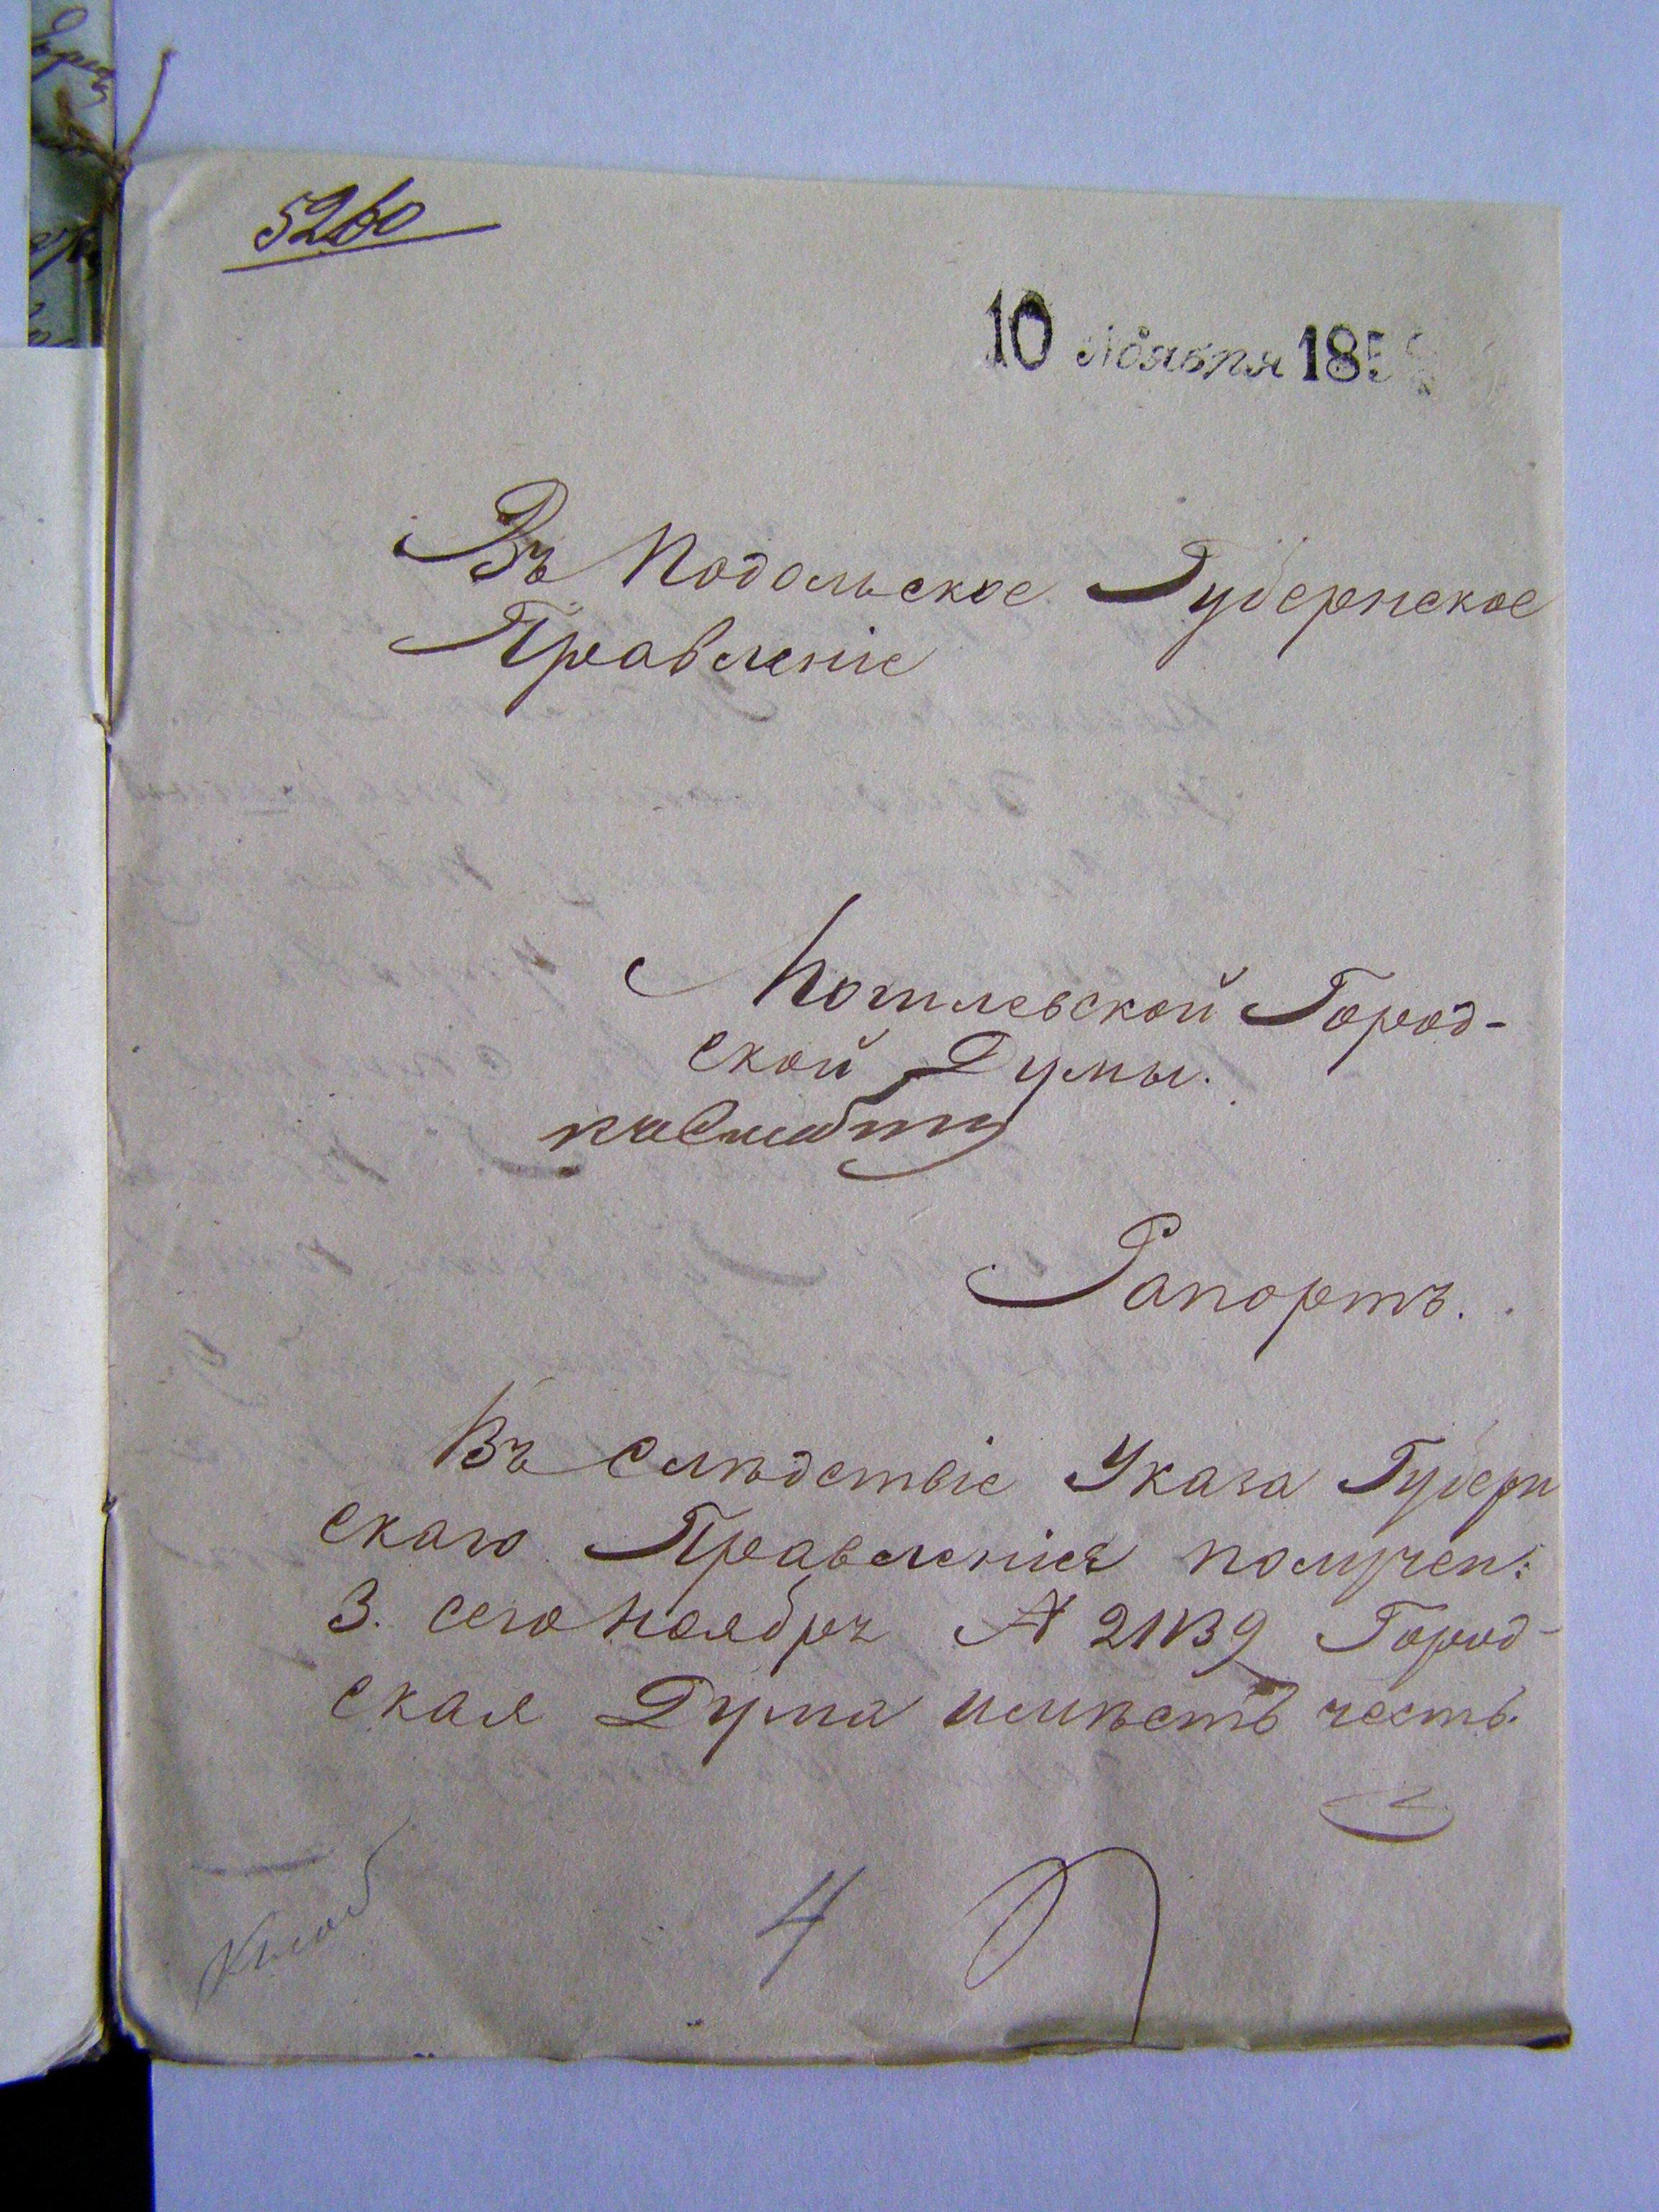 5260
10 Ноября 185
Въ Подольское Губернское
Правленіе
Могилевской Город-
ской Думы.
Рапортъ.
Въ Слѣдствіе Указа Губерн
скаго Правленія получен:
3. сего Ноября № 21139 Город-
ская Дума имѣетъ честь
4